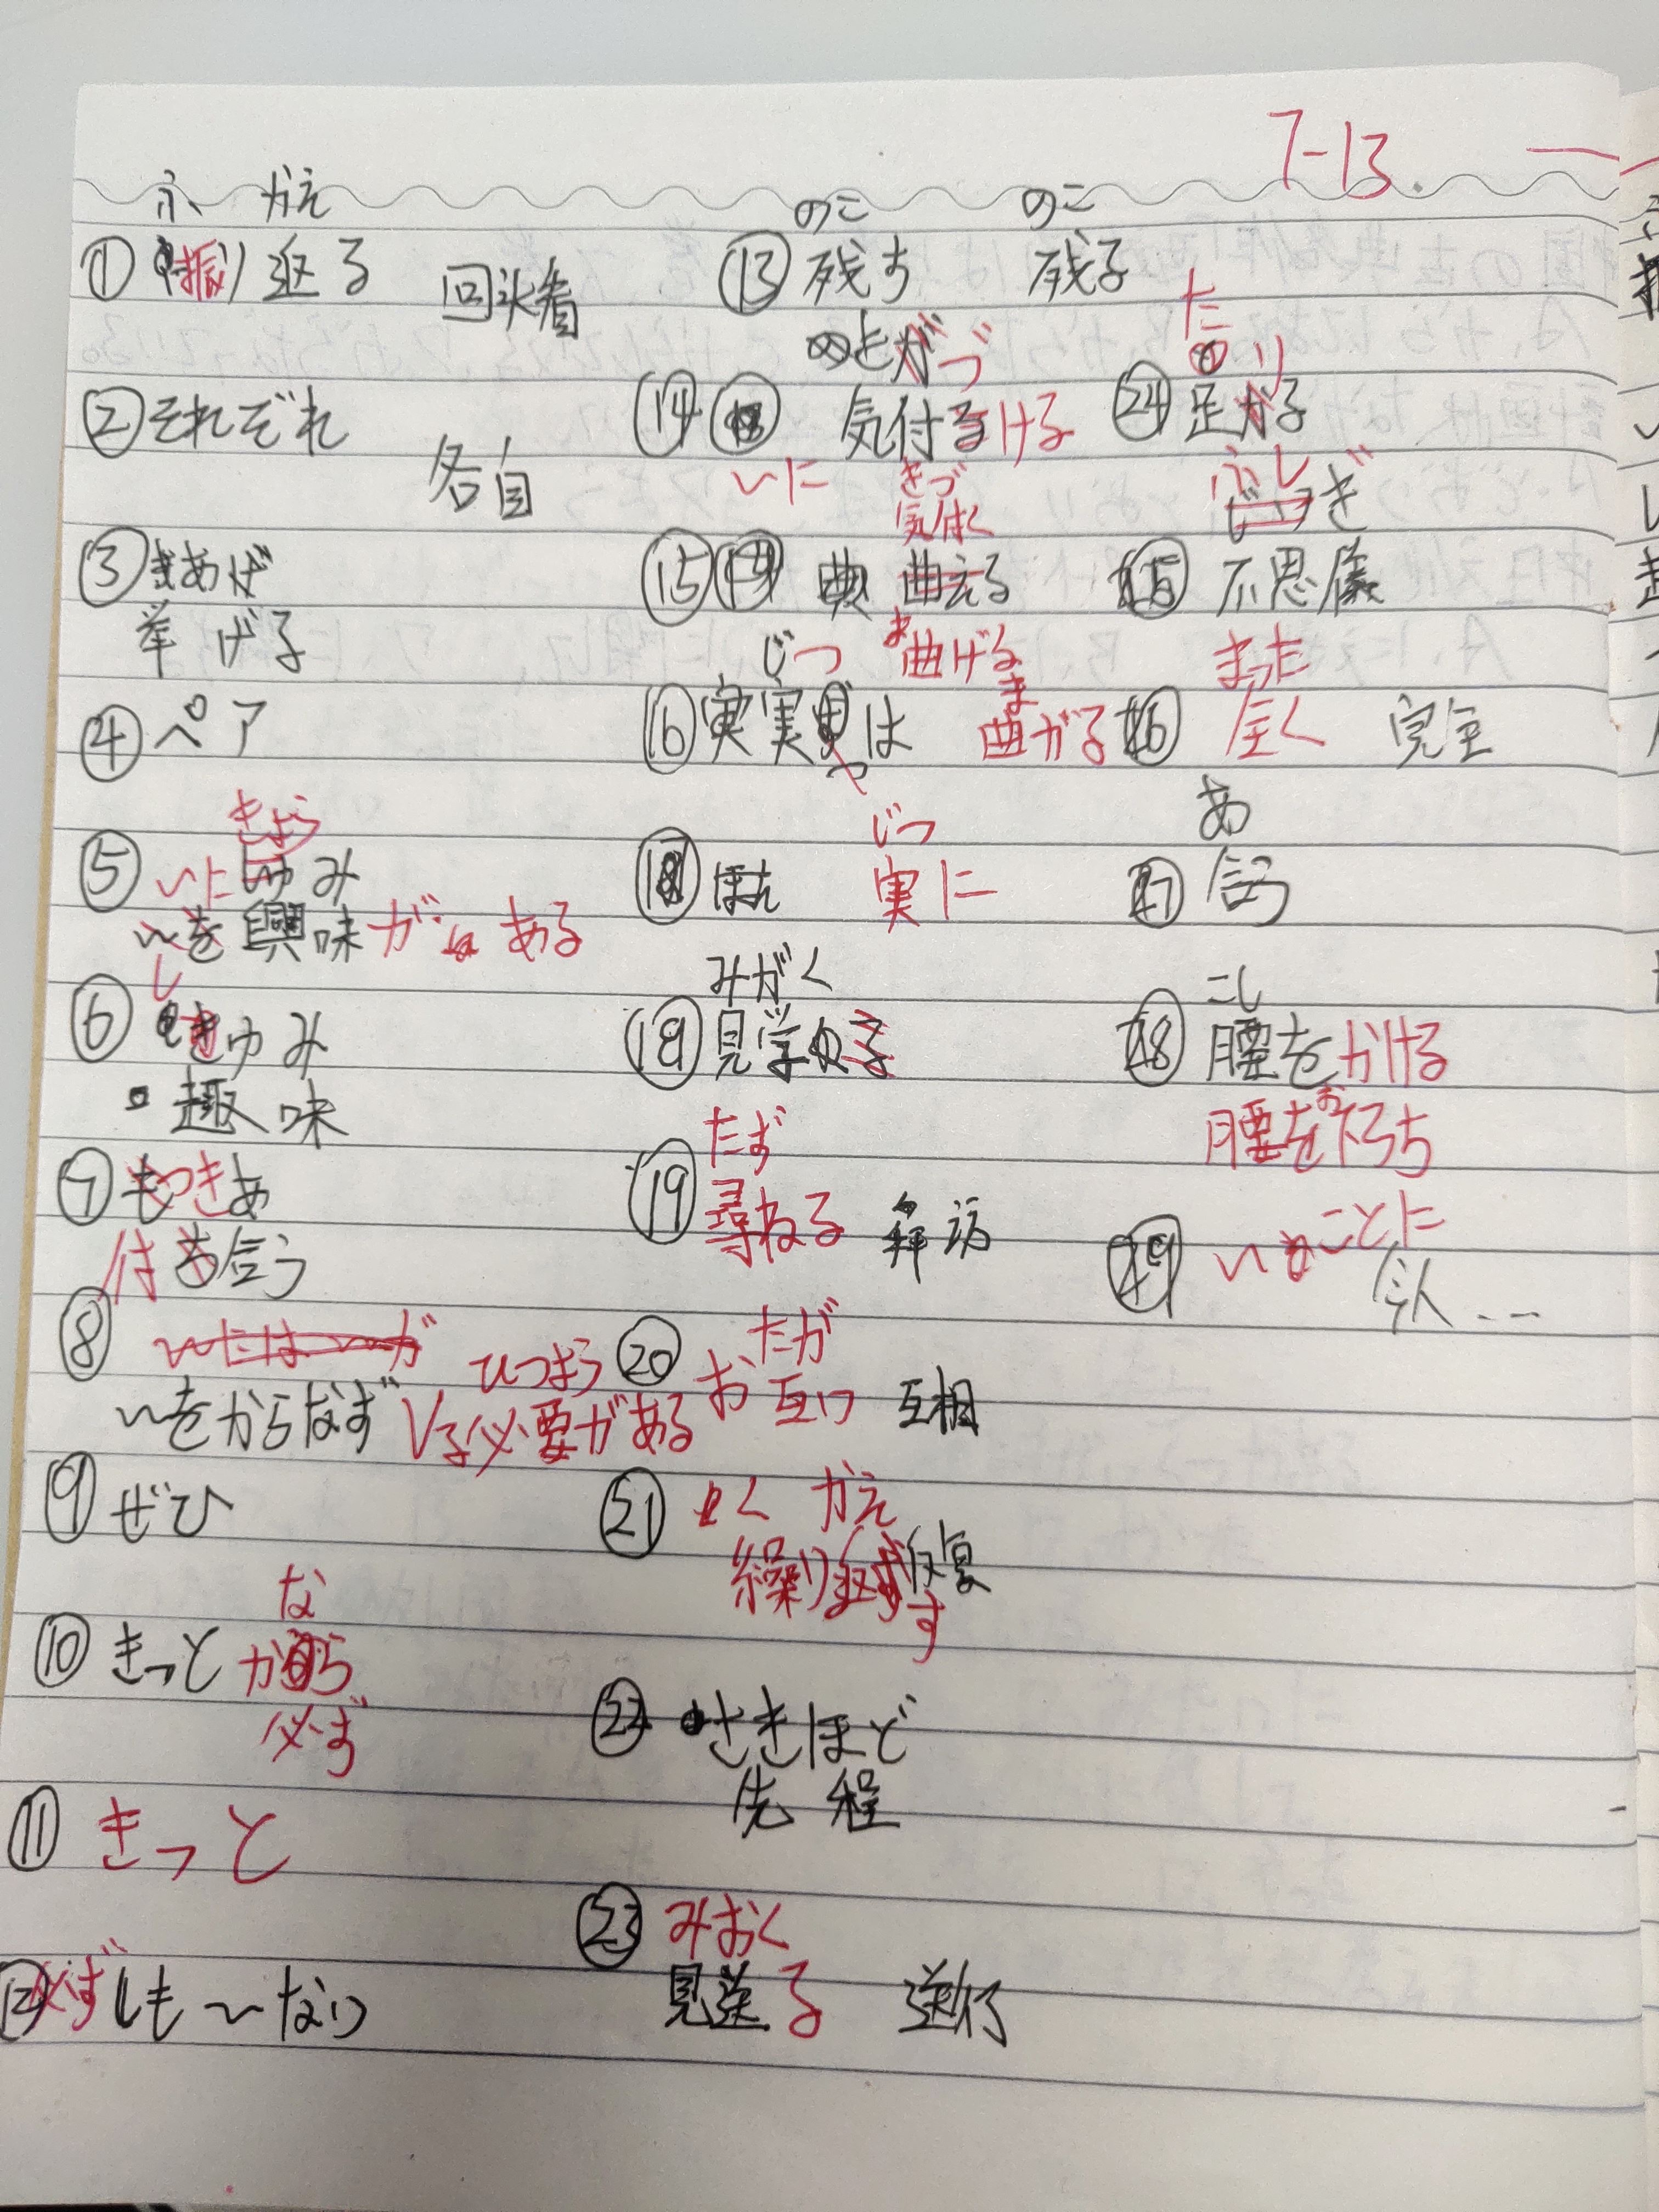 7-13.
ふ かえ
① 振り返る 回头看
② それぞれ
各自
③ あげ
挙げる
④ ペア
きょう
⑤ 〜に しゅみ
〜を興味がある
し
⑥ きゅみ
趣味
⑦ つきあ
付き合う
⑧ 〜たは〜が
ひつよう
〜をからなず する必要がある
⑨ ぜひ
な
⑩ きっと から
必ず
⑪ きっと
⑫ 必ずしも〜ない
のこ のこ
⑬ 残す 残る
づ
⑭ 気付ける
〜に きづ
気付く
⑮ 曲える
ま
曲げる
じつ ま
⑯ 実は 曲がる
じつ
⑱ ほん 実に
みがく
⑱ 見学する
たず
⑲ 尋ねる 拜访
たが
⑳ お互い 互相
く かえ
㉑ 繰り返す 反复
㉒ さきほど
先程
㉓ みおく
見送る 送行
た
り
㉔ 足りる
ふし
ぎ
㉕ 不思儀
まった
㉖ 全く 完全
あ
㉗ 合う
こし
㉘ 腰をかける
お
腰を下ろち
㉙ 〜ことに
令人...